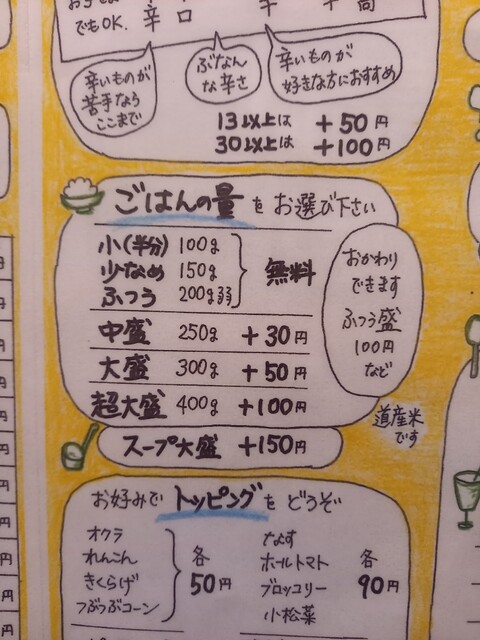 でもOK. 辛口
辛いものが
苦手なら
ここまで
ぶなん
な辛さ
辛いものが
好きな方におすすめ
13以上は +50円
30以上は +100円
ごはんの量をお選び下さい
小(半分) 100g
少なめ 150g
ふつう 200g弱
無料
中盛 250g +30円
大盛 300g +50円
超大盛 400g +100円
おかわり
できます
ふつう盛
100円
など
スープ大盛 +150円
道産米
です
お好みでトッピングをどうぞ
オクラ
れんこん
きくらげ
つぶつぶコーン
各
50円
なす
ホールトマト
ブロッコリー
小松菜
各
90円